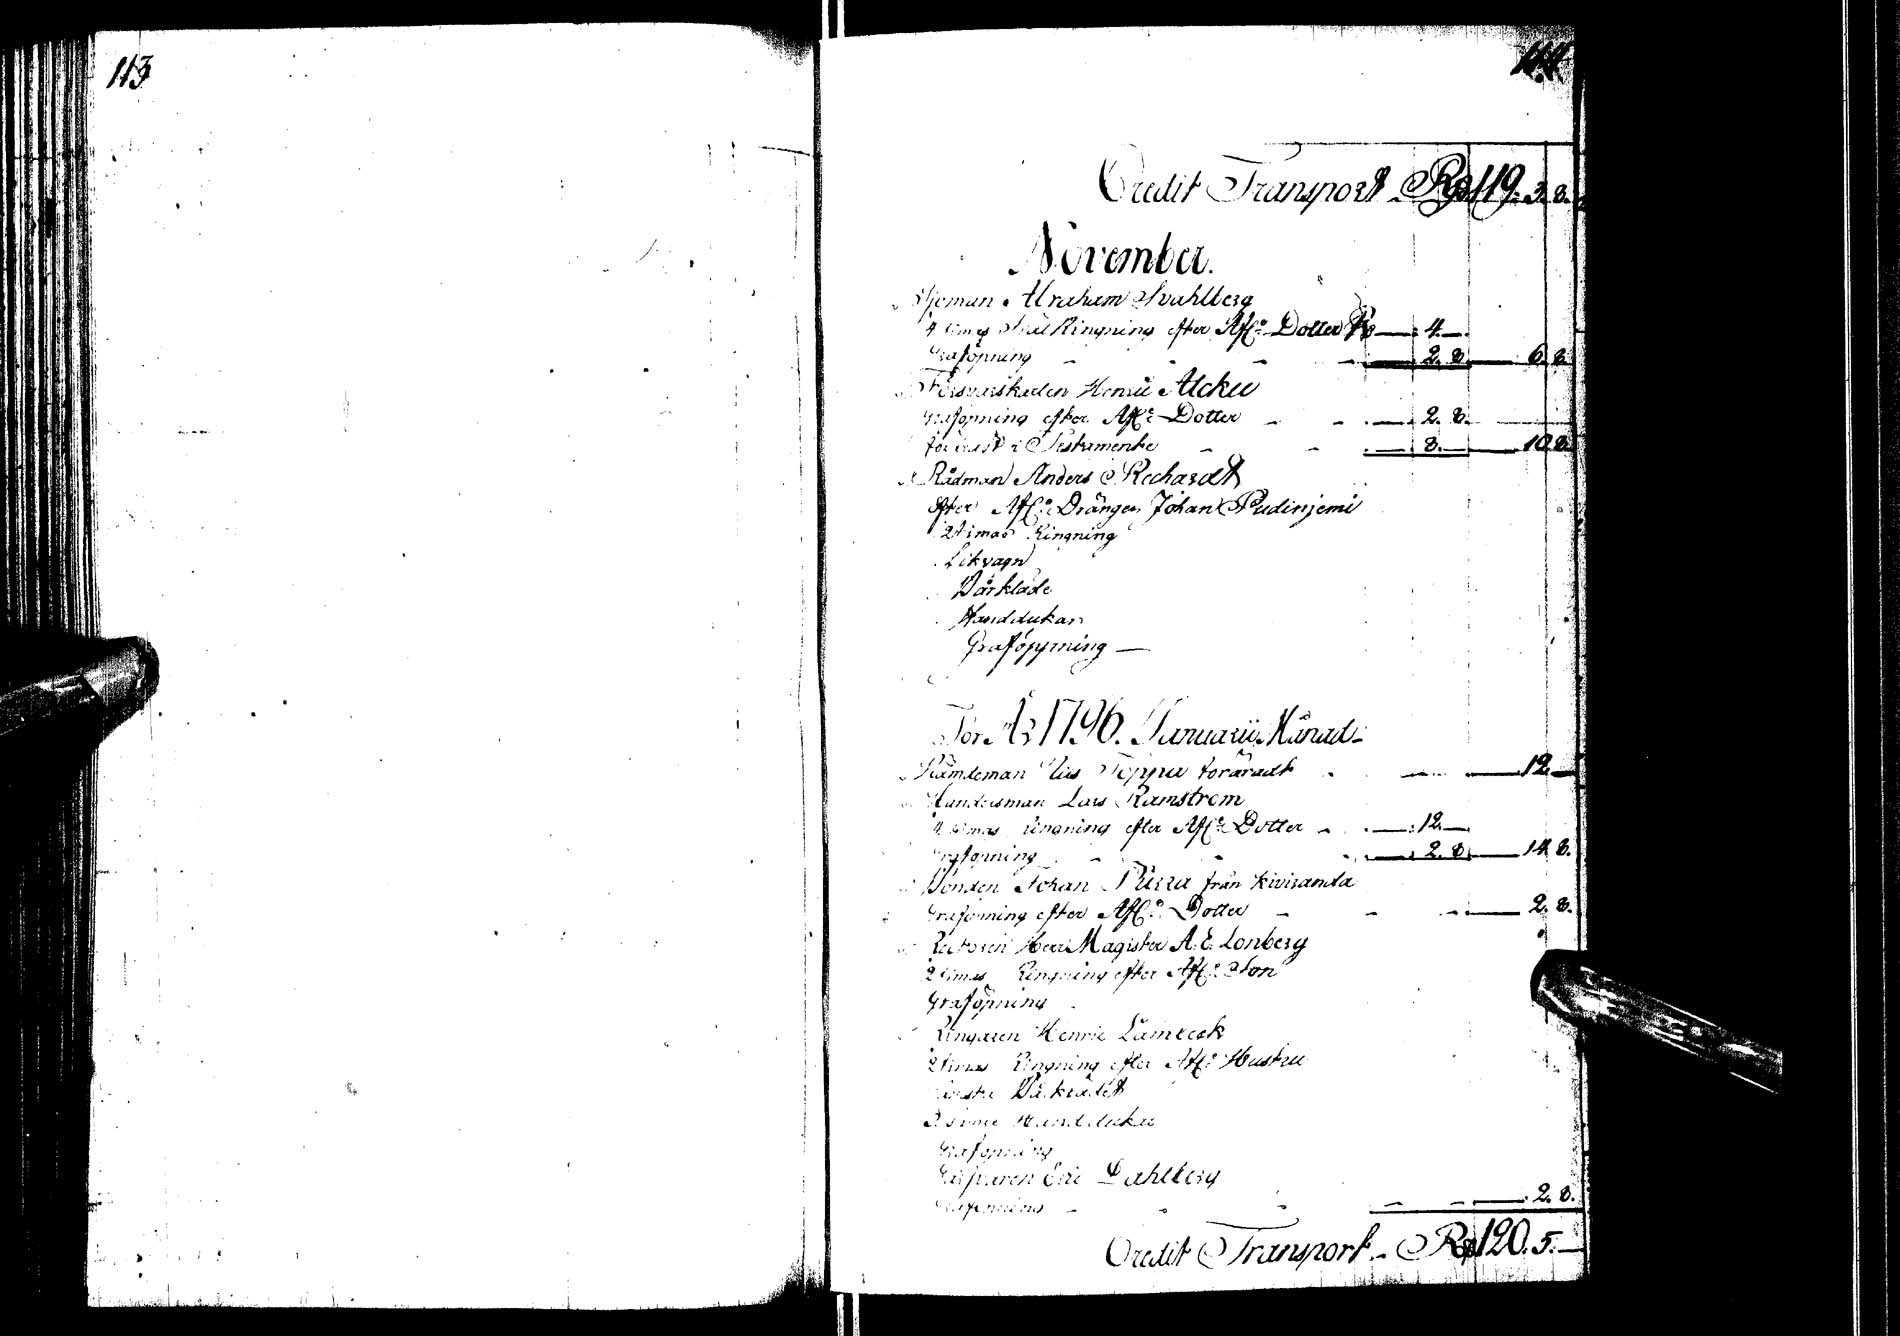 113
114
Credit Transport Rd 119. 3. 8.
November.
Abraham Svahlberg
4 timas Ringning efter Afl:ne Dotter Rd — 4. —
Graföpning — 2. 8. — 6. 8.
Henric Alcku
Graföpning efter Afl:ne Dotter — 2. 8.
Testamente — 8. — — 10. 8.
Rådman Anders Rechardt
efter Afl:ne Drängen Johan Pudinjemi
2 timas Ringning
Likvagn
Bårkläde
Handdukar
Graföppning —
För År 1796. Januarii Månad
Nämdeman Toppu föräradt — 12. —
Lars Ramstrom
4 timas Ringning efter Afl:ne Dotter — 12. —
Graföpning — 2. 8. — 14. 8.
Bonden Johan från
Graföpning efter Afl:ne Dotter — 2. 8.
Rectoren Herr Magister A. E. Lonberg
2 timas Ringning efter Afl:ne Son
Graföpning
Ringaren Henric
2 timas Ringning efter Afl:ne Hustru
Bårklädet
Handdukar
Graföpning
Eric Dahlberg
Graföpning — 2. 8.
Credit Transport Rd 120. 5. —